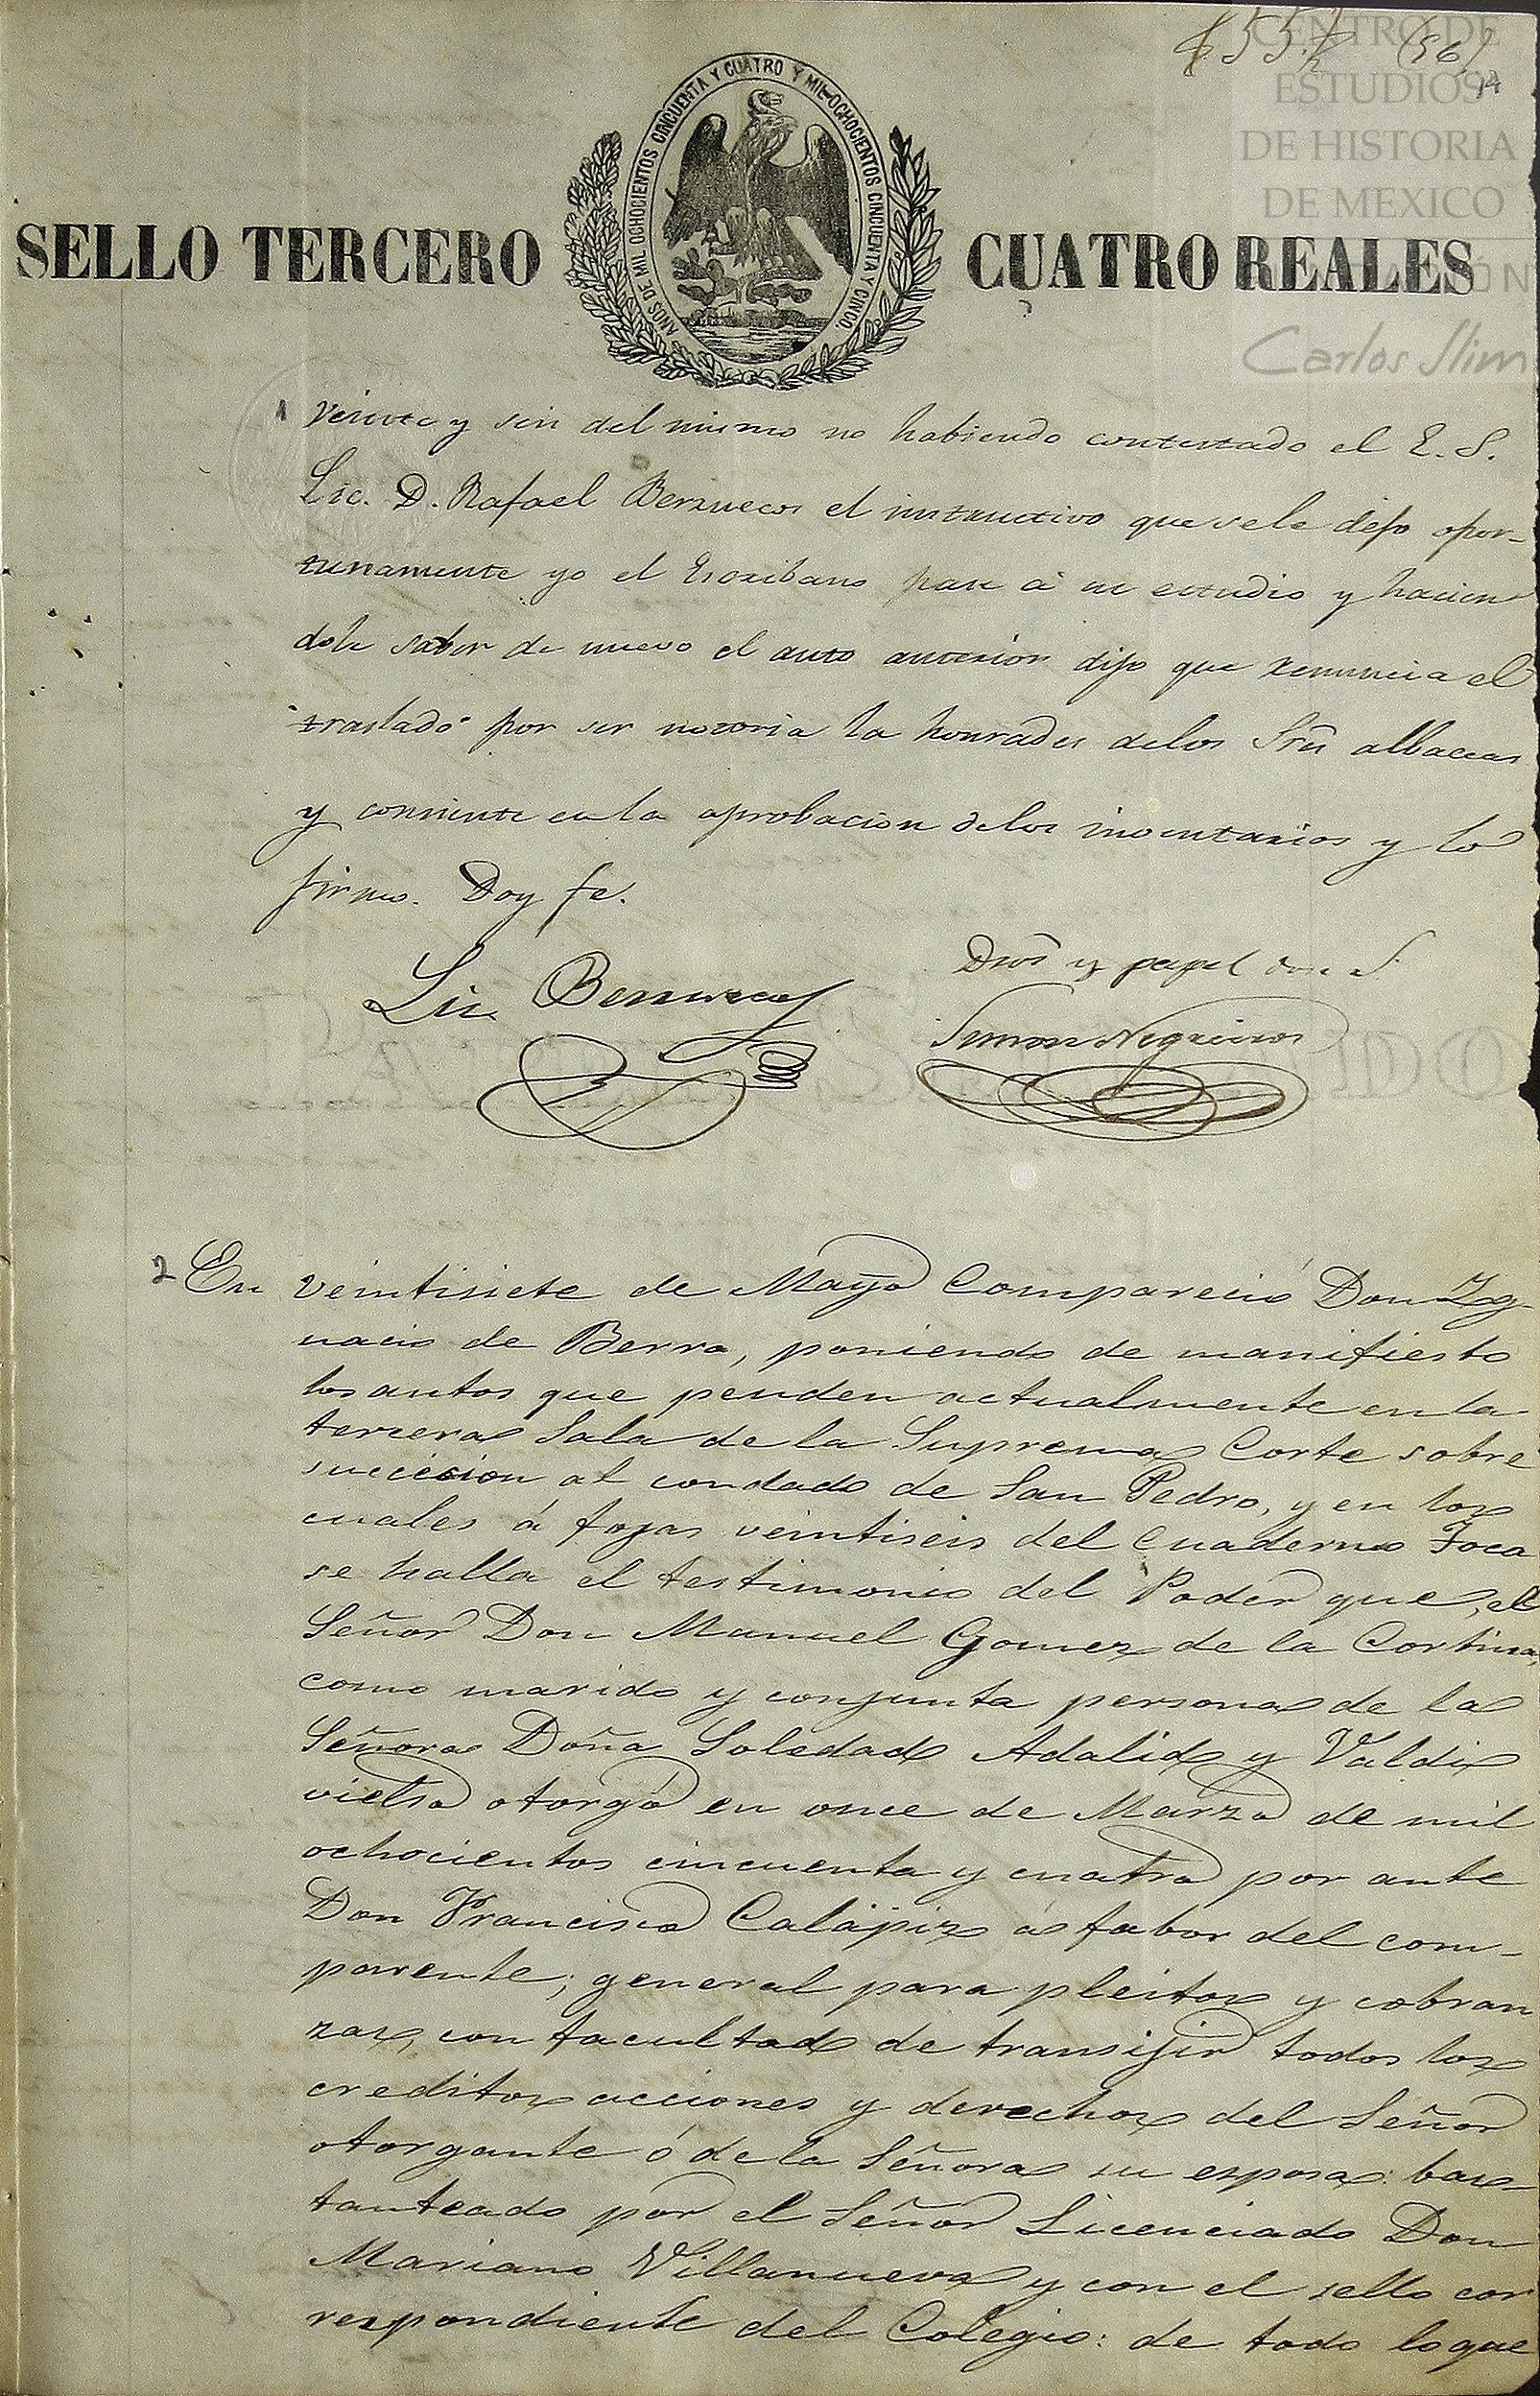 $55.2 (56)
14
CENTRO DE
ESTUDIOS
DE HISTORIA
DE MEXICO
Carlos Slim
AÑOS DE MIL OCHOCIENTOS CINCUENTA Y CUATRO Y MIL OCHOCIENTOS CINCUENTA Y CINCO.
SELLO TERCERO CUATRO REALES
1 Veinte y seis del mismo no habiendo contestado el E. S.
Lic. D. Rafael Berruecos el instructivo que se le dejo opor-
tunamente yo el Escribano pasé á su estudio y hacien
dole saber de nuevo el auto anterior dijo que renuncia el
traslado por ser notoria la honrades delos Srês albaceas
y consiente en la aprobacion delos inventarios y lo
firmo. Doy fe.
Lic. Berruecos
Dros y papel doce r.
Simon Negreiros
2 En veintisiete de Mayo Comparecio Don Ig
nacio de Berra, poniendo de manifiesto
los autos que penden actualmente en la
tercera Sala de la Suprema Corte sobre
succesion al condado de San Pedro, y en los
cuales á fojas veintiseis del Cuaderno Toca
se halla el testimonio del Poder que, el
Señor Don Manuel Gomez de la Cortina,
como marido y conjunta persona de la
Señora Doña Soledad Adalid y Valdi
vielso otorgó en once de Marzo de mil
ochocientos cincuenta y cuatro por ante
Don Francisco Calapiz á fabor del com-
parente; general para pleitos y cobran
zas, con facultad de transijir todos los
creditos acciones y derechos del Señor
otorgante ó de la Señora su esposa: bas-
tanteado por el Señor Licenciado Don
Mariano Villanueva y con el sello cor
respondiente del Colegio: de todo lo que